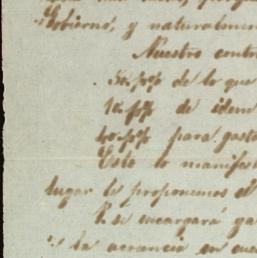 Gobierno, y naturalmen
Nuestro contr
5% de lo que
1% de idem
40 p% para gasto
Esto lo manifest
lugar le proponemos el
P. se encargará ya
la acrancia en cue